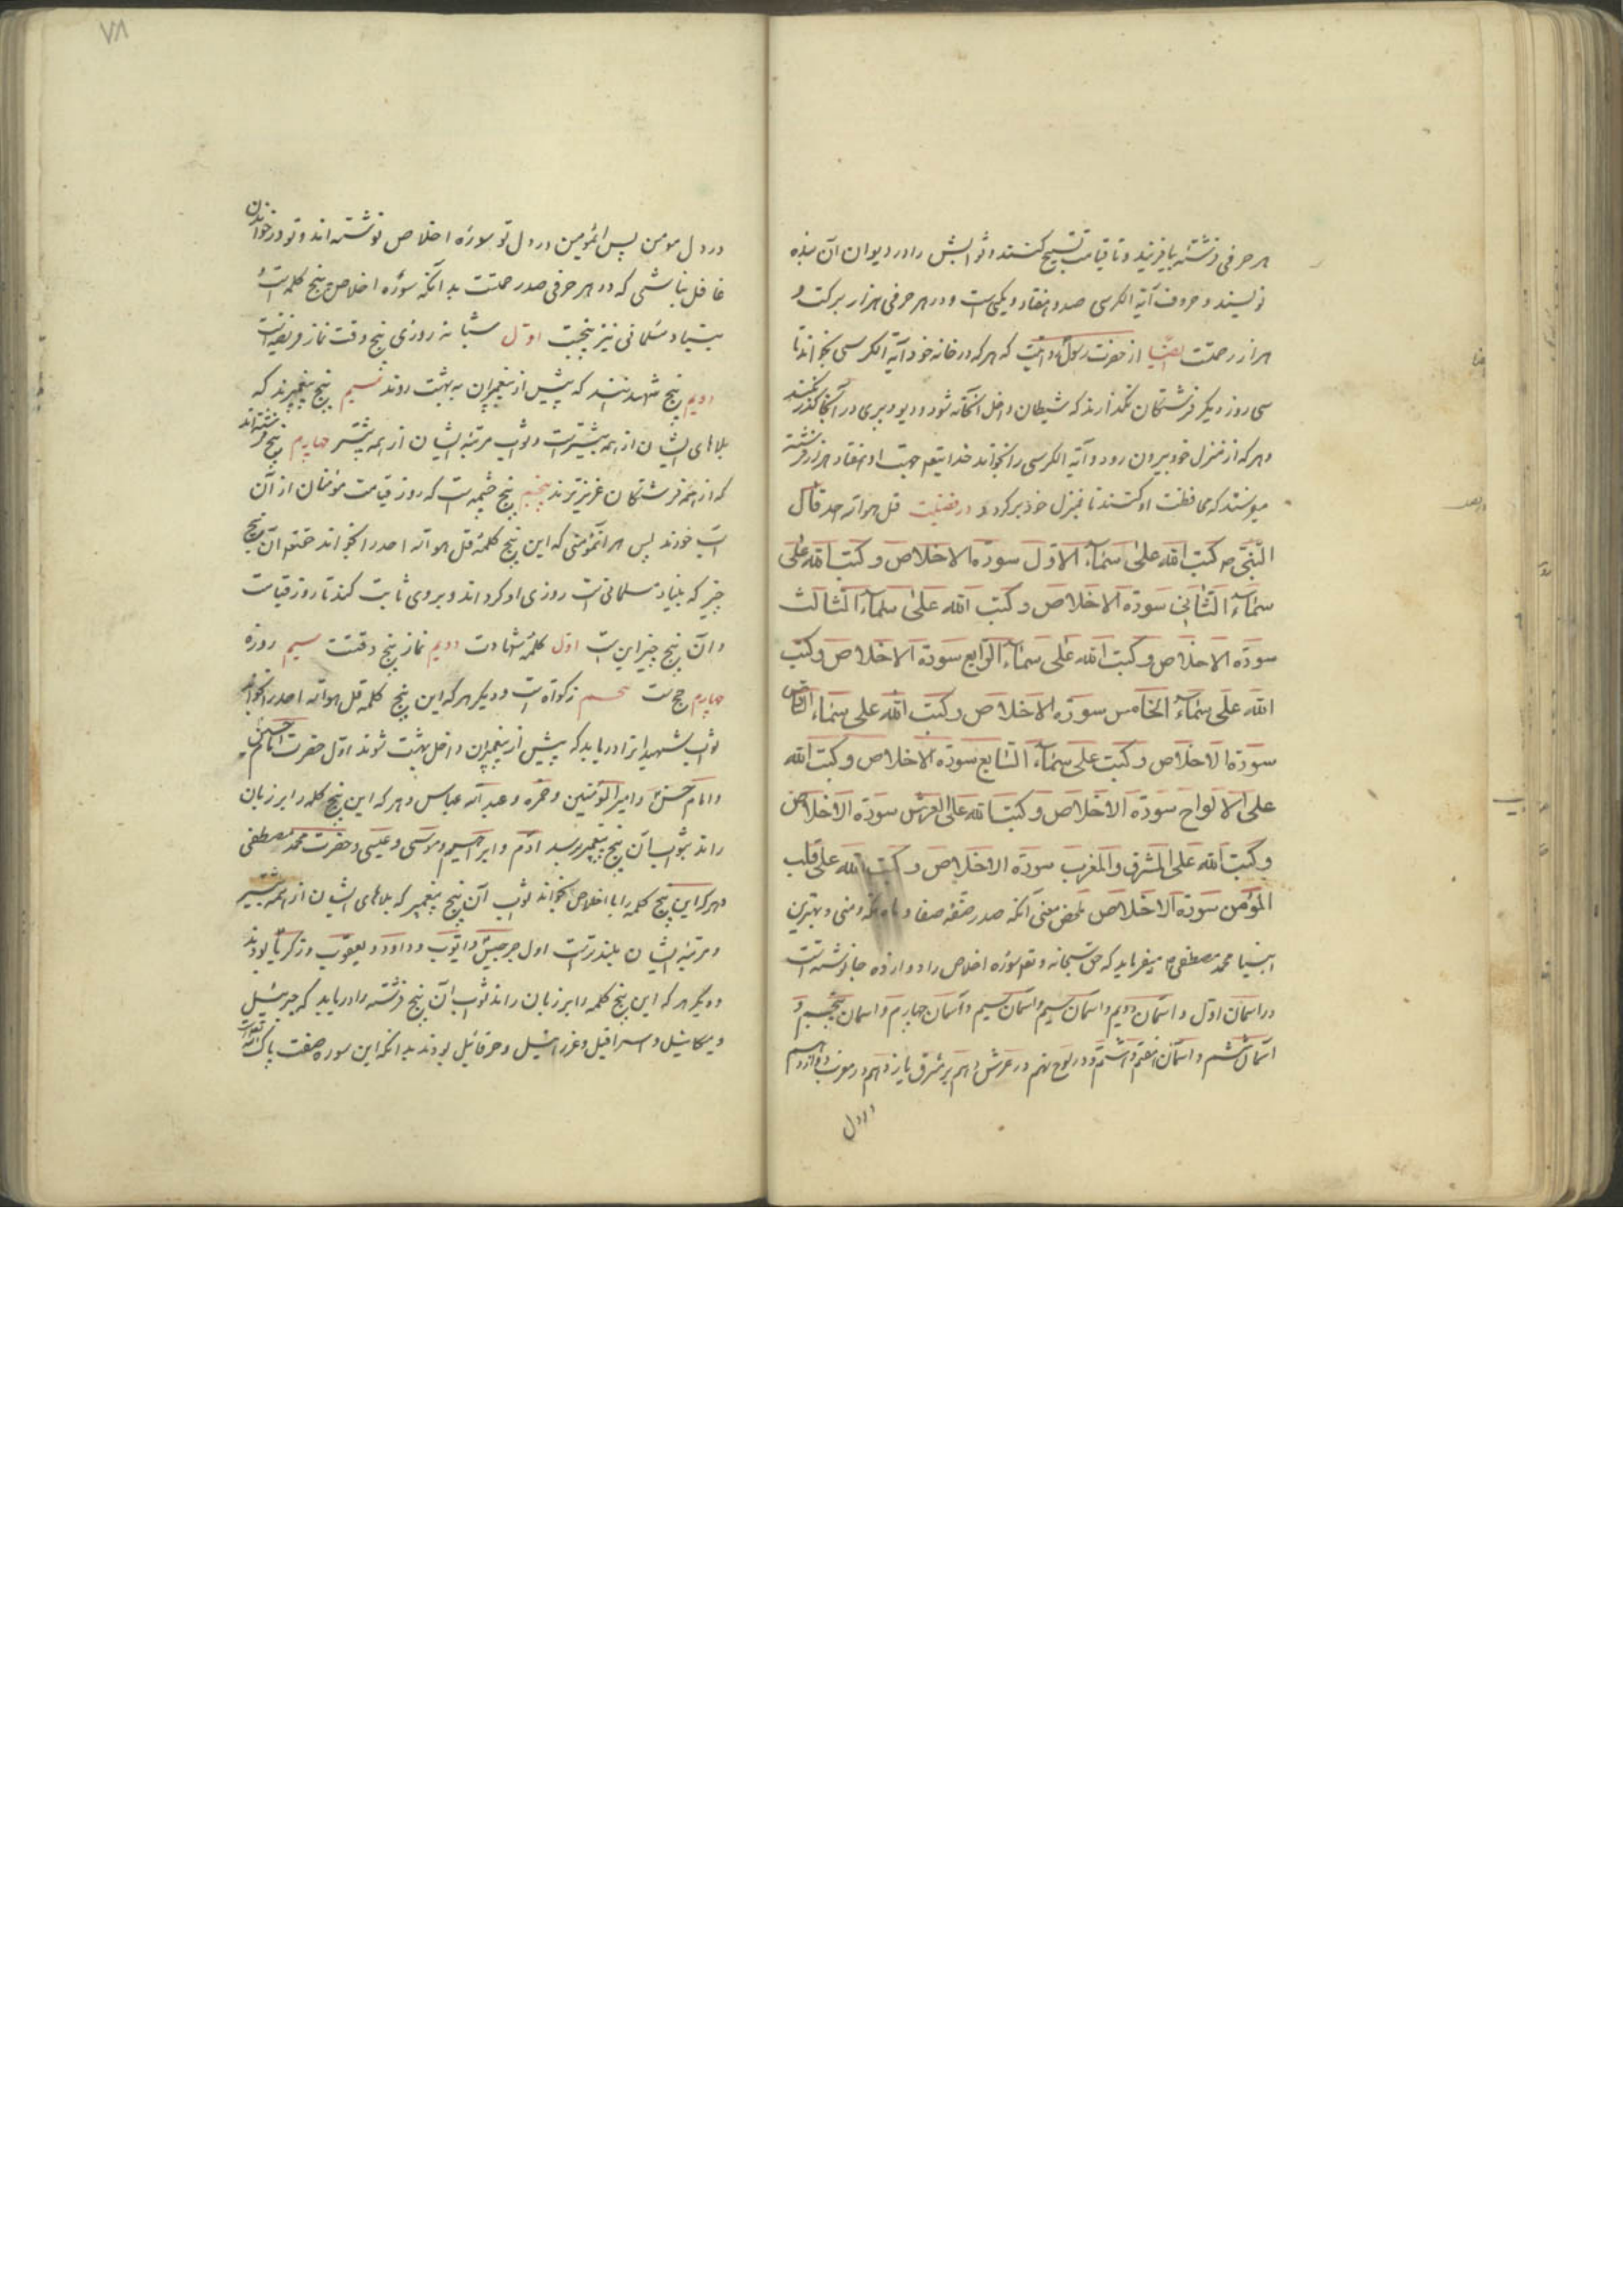 هر حرفی فرشتهٔ بیافریند و تا قیامت تسبیح کنند و ثوابش را در دیوان آن بنده
نویسند و حروف آیة الکرسی صد و هفتاد و یکی است و در هر حرفی هزار برکت و
هزار رحمتت ایضا از حضرت رسول که هر که در خانه خود آیة الکرسی بخواند تا
سی روز دیکر فرشتکان نکذارند که شیطان داخل آنخانه شود و دیو و پری در آنجا کذر نکنند
و هر که از منزل خود بیرون رود و آیة الکرسی را بخواند خدایتعم جهت او هفتاد هزار فرشته
میفرستد که محافظت او کنند تا بمنزل خود برکردد در فضیلت قل هو الله احد قال
النبی ص کتب الله علی سمآء الاول سورة الاخلاص و کتب الله علی
سمآء الثانی سورة الاخلاص و کتب الله علی سمآء الثالث
سورة الاخلاص و کتب الله علی سمآء الرابع سورة الاخلاص و کتب
الله علی سمآء الخامس سورة الاخلاص و کتب الله علی سمآء السادس
سورة الاخلاص و کتب علی سمآء السابع سورة الاخلاص و کتب الله
علی الالواح سورة الاخلاص و کتب الله علی العرش سورة الاخلاص
و کتب الله علی المشرق و المغرب سورة الاخلاص و کتب الله علی قلب
المؤمن سورة الاخلاص معنی آنکه صدر صفهٔ صفا و و بهترین
انبیا محمد مصطفی ص میفرماید که حق سبحانه و تعم سورهٔ اخلاص را دوازده جا نوشته است
در اسمان اول و اسمان دویم و اسمان سیم و اسمان چهارم و اسمان پنجم و
اسمان ششم و اسمان هفتم و هشتم در لوح نهم در عرش دهم بر مشرق یازدهم در مغرب دوازدهم
در دل
۷۸
در دل مومن پس ای مؤمن در دل تو سورهٔ اخلاص نوشته اند و تو در خواندن
غافل نباشی که در هر حرفی صد رحمتت بدانکه سورهٔ اخلاص پنج کلمه است
بنیاد مسلمانی نیز پنجست اول شبانه روزی پنج وقت نماز فریضه است
دویم پنج شهیدند که پیش از پیغمبران به بهشت روند سیم پنج پیغمبرند که
بلاهای ایشان از همه بیشترست و ثواب مرتبهٔ ایشان از همه بیشتر چهارم پنج فرشته اند
که از همه فرشتکان عزیزترند پنجم پنج چشمه است که روز قیامت مؤمنان از آن
آب خورند پس هر آنمؤمنی که این پنج کلمهٔ قل هو الله احد را بخواند حقتعم آن پنج
چیز که بنیاد مسلمانی است روزی او کرداند و بروی ثابت کند تا روز قیامت
و آن پنج چیز این است اول کلمهٔ شهادت دویم نماز پنج وقتت سیم روزه
چهارم حج است پنجم زکوة است و دیکر هر که این پنج کلمه قل هو الله احد را بخواند
ثواب شهیدانرا دریابد که پیش از پیغمبران داخل بهشت شوند اول حضرت امام حسین
و امام حسن و امیر المؤمنین و حمزه و عبد الله عباس و هر که این پنج کلمه را بر زبان
راند بثواب آن پنج پیغمبر رسد آدم و ابرهیم و موسی و عیسی و حضرت محمد مصطفی
و هر که این پنج کلمه را با اخلاص بخواند ثواب آن پنج پیغمبر که بلاهای ایشان از همه بیشتر
و مرتبهٔ ایشان بلندترست اول جرجیس و ایوب و داود و یعقوب و زکریا بودند
و دیکر هر که این پنج کلمه را بر زبان راند ثواب آن پنج فرشته را دریابد که جبرئیل
و میکائیل و اسرافیل و عزرائیل و حزقائیل بودند بدانکه این سوره صفت پاک